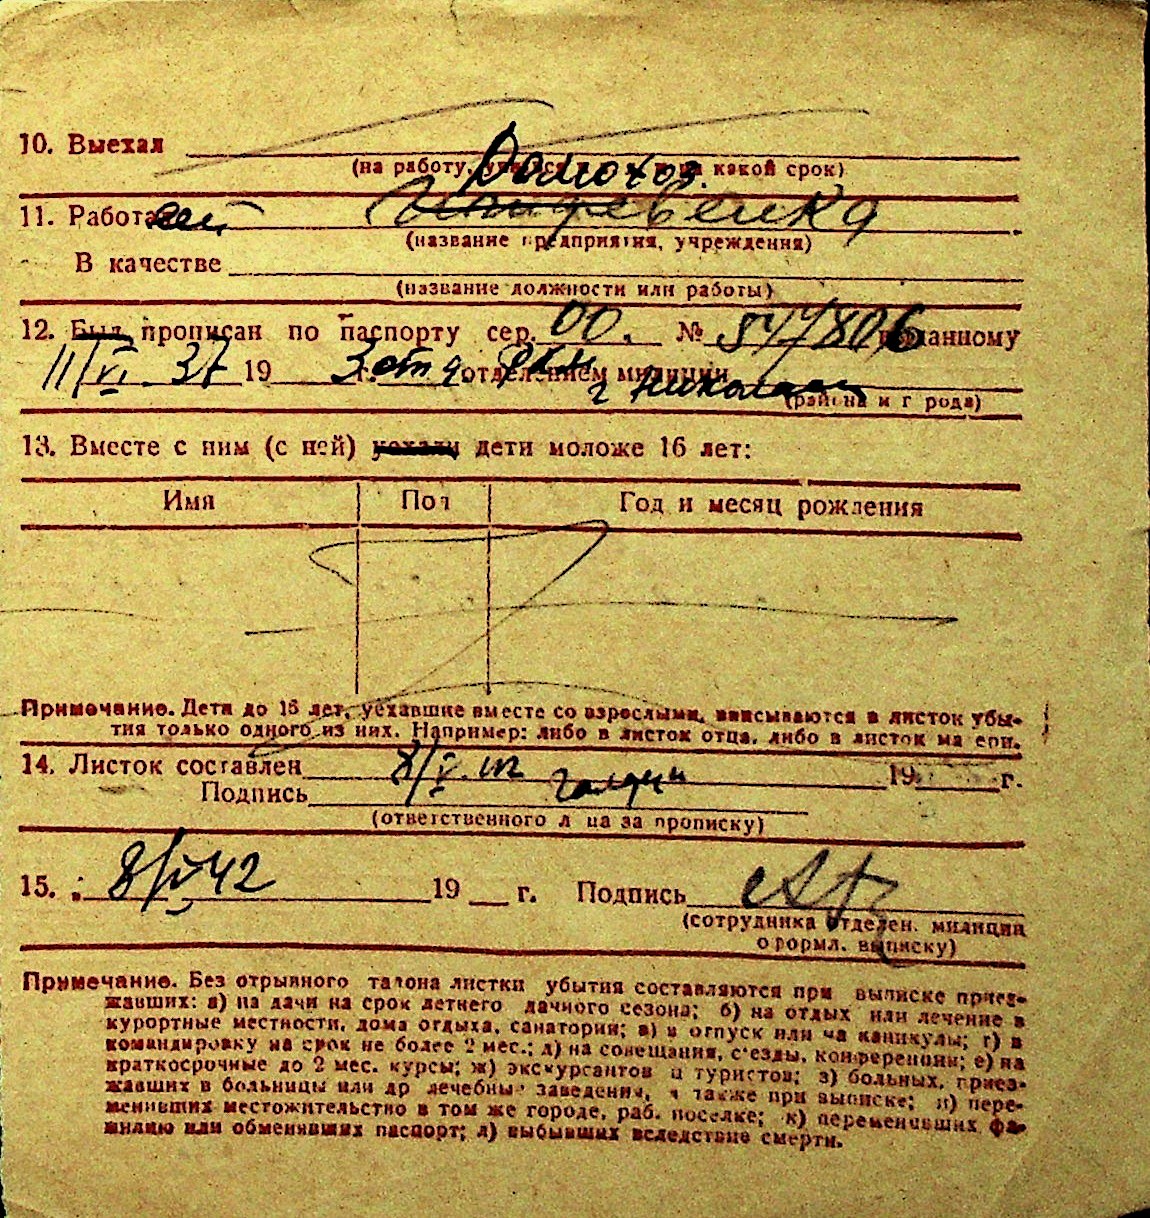 10. Выехал
(на работу, на какой срок)
Домохоз.
11. Работает Иждивенка
(название предприятия, учреждения)
В качестве
(название должности или работы)
12. Был прописан по паспорту сер. 00. № 577806 выданному
11/VI. 37 19 г. 3 отд. отделением милиции
г Николаев
(района и города)
13. Вместе с ним (с ней) уехали дети моложе 16 лет:
Имя Пол Год и месяц рождения
Примечание. Дети до 16 лет, уехавшие вместе со взрослыми, вписываются в листок убы-
тия только одного из них. Например: либо в листок отца, либо в листок матери.
14. Листок составлен 8/V. 19 г.
Подпись
(ответственного лица за прописку)
15. 8/V 42 19 г. Подпись
(сотрудника отделен. милиции
оформл. выписку)
Примечание. Без отрывного талона листки убытия составляются при выписке приез-
жавших: а) на дачи на срок летнего дачного сезона; б) на отдых или лечение в
курортные местности, дома отдыха, санатории; в) в отпуск или на каникулы; г) в
командировку на срок не более 2 мес.; д) на совещания, съезды, конференции; е) на
краткосрочные до 2 мес. курсы; ж) экскурсантов и туристов; з) больных, приез-
жавших в больницы или др лечебные заведения, а также при выписке; и) пере-
менивших местожительство в том же городе, раб. поселке; к) переменивших фа-
милию или обменявших паспорт; л) выбывших вследствие смерти.